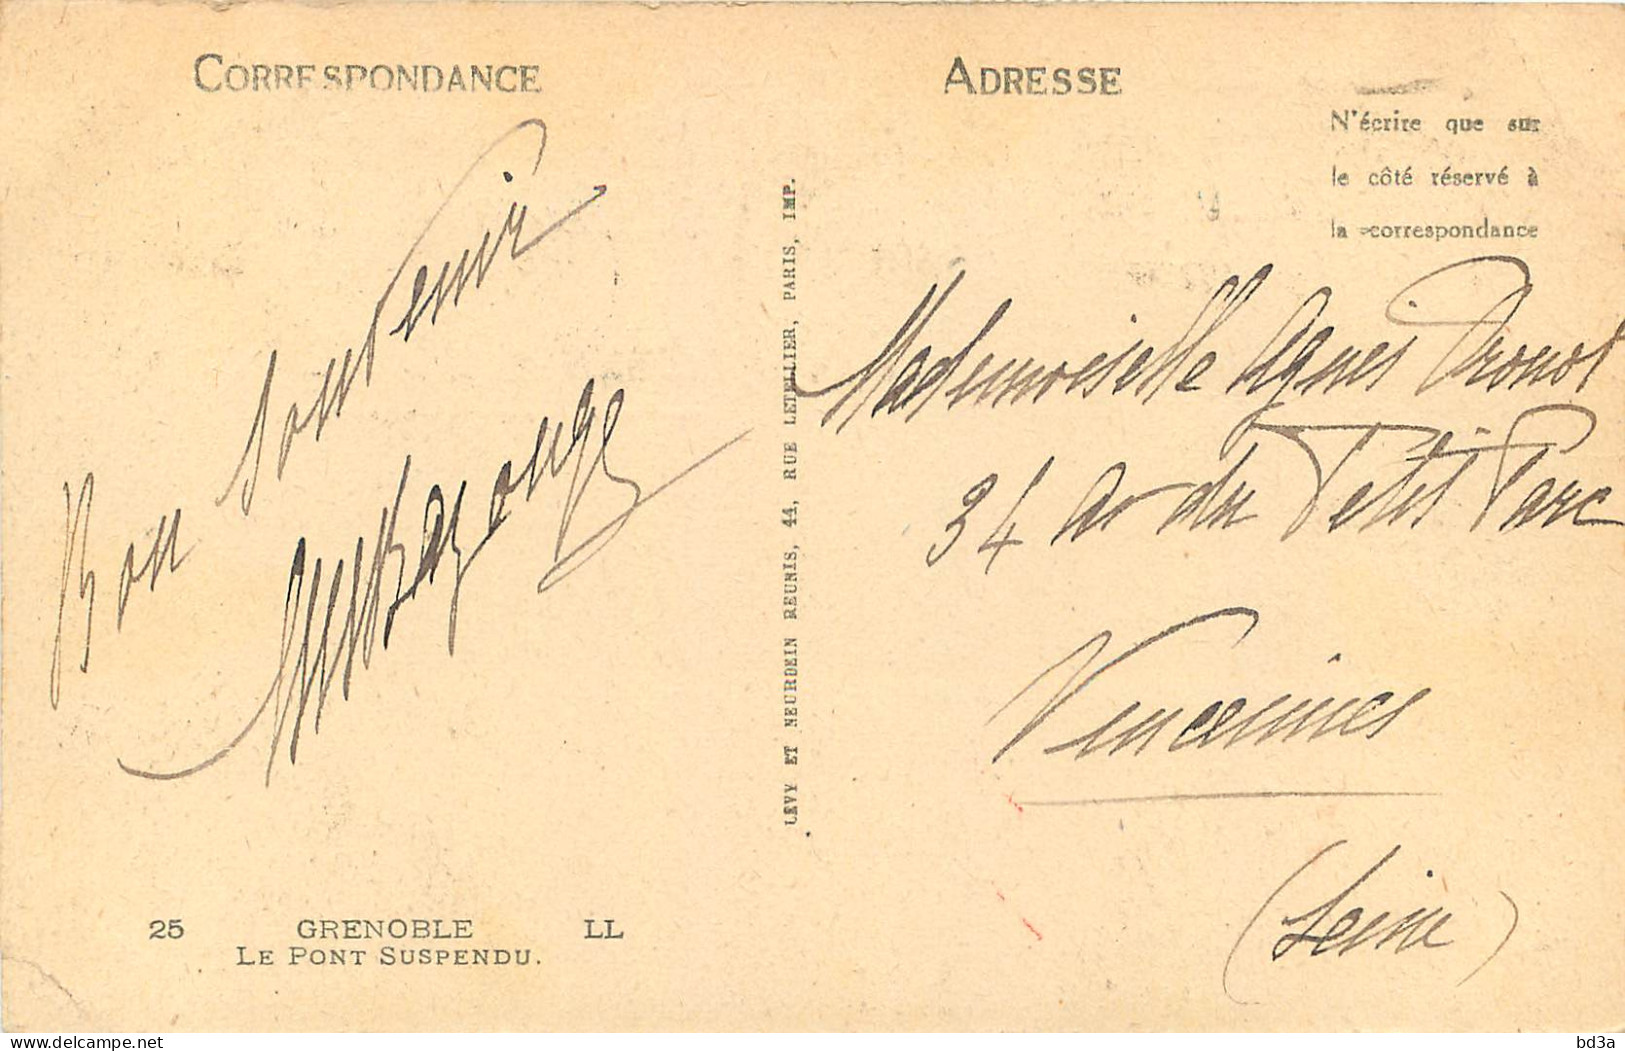 CORRESPONDANCE
ADRESSE
N'écrire que sur
le côté réservé à
la correspondance
Bon souvenir
LÉVY ET NEURDEIN RÉUNIS, 44, RUE LETELLIER, PARIS, IMP.
Mademoiselle Agnès Drouot
34 av du Petit Parc
Vincennes
(Seine)
25 GRENOBLE LL
LE PONT SUSPENDU.
www.delcampe.net
bd3a